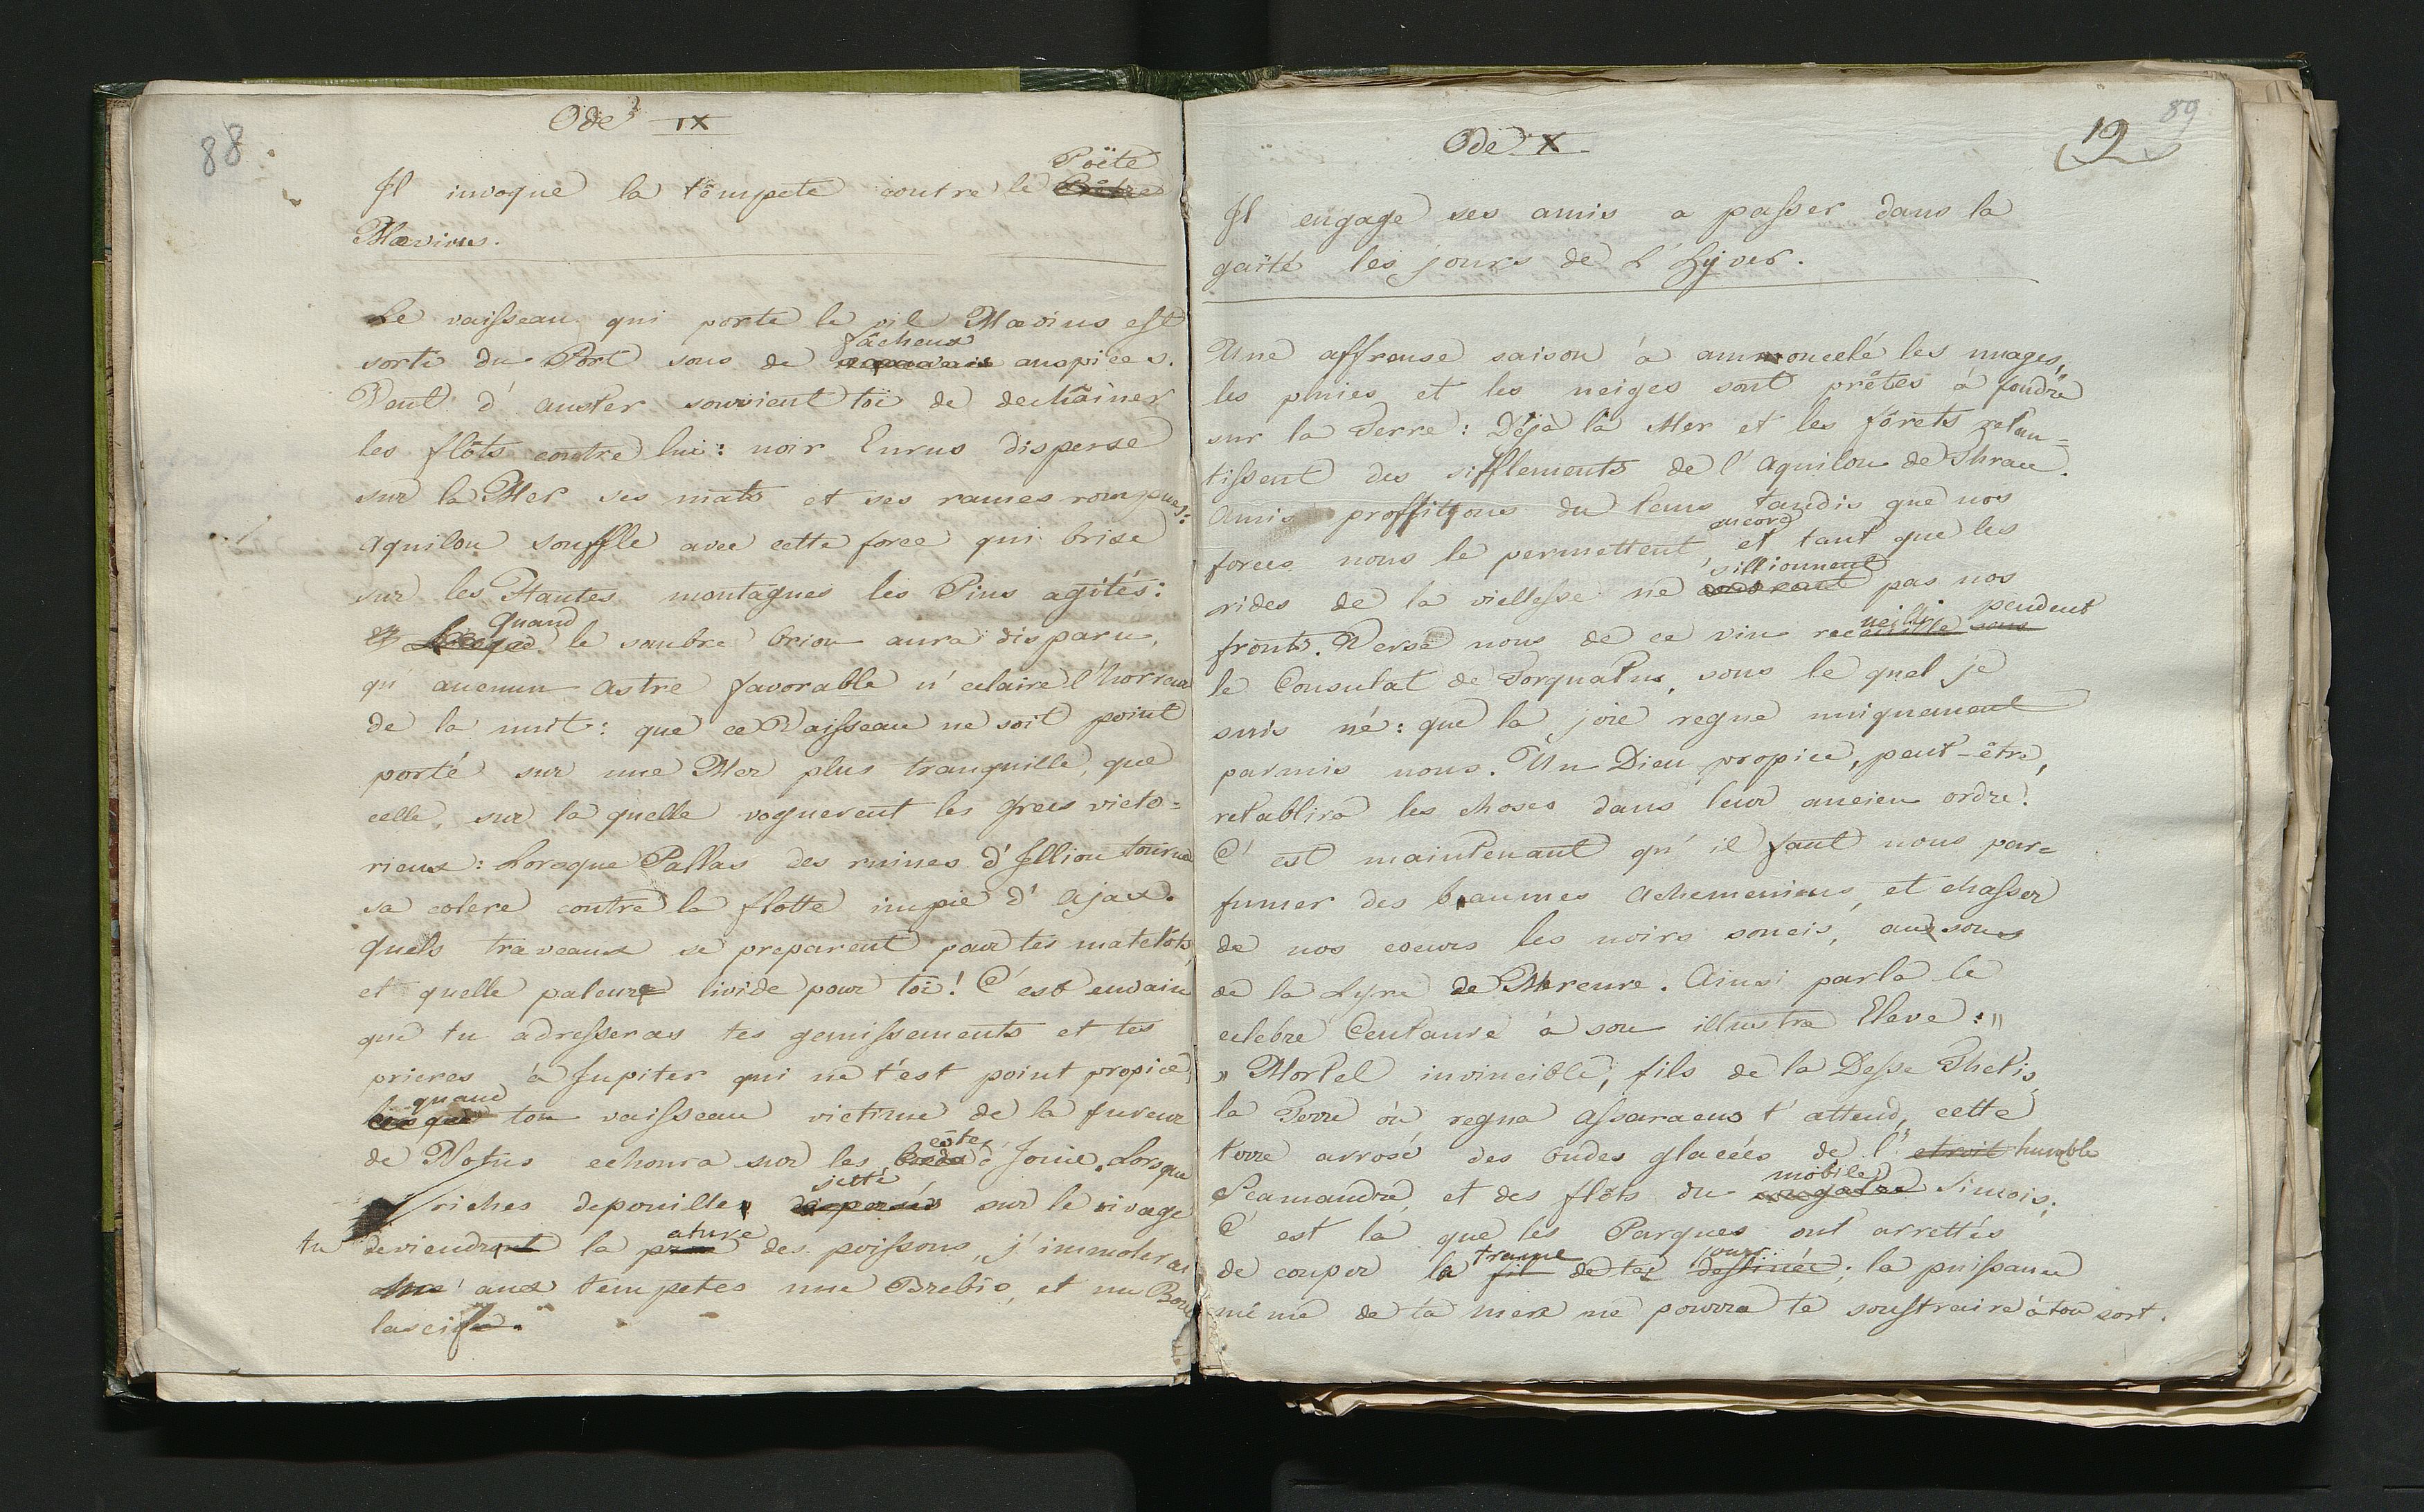 88
Ode IX
Poëte
Il invoque la têmpete contre le
Mævius.
Le vaisseau qui porte le vil Mævius est
facheux
sorti du Port sous de auspices.
Vent d'auster souvient toi de dechâiner
les flôts contre lui : noir Eurus disperse
sur la Mer ses mats et ses rames rompues :
aquilon souffle avec cette force qui brise
sur les Hautes montagnes les Pins agités :
Quand
le sombre Orion aura disparu,
qu'aucunun astre favorable n'eclaire l'horreur
de la nuit : que ce Vaisseau ne soit point
porté sur une Mer plus tranquille, que
celle, sur la quelle voguerent les grecs victo=
rieux : Lorsque Pallas des ruines d'Illion tourna
sa colere contre la flotte impie d'Ajax.
quels traveaux se preparent pour tes matelots,
et quelle paleur livide pour toi ! C'est envain
que tu adresseras tes gemissements et tes
prieres à Jupiter qui ne t'est point propice,
quand
lorsque ton vaisseau victime de la fureur
de Notus echoura sur les bords d'Ionie. Lorsque
côtes
jetté
riches depouilles sur le rivage
ature
tu deviendront la proie des poissons, j'immolerai
aux tempetes une Brebis, et un Bouc
lascif.
89
12
Ode X
Il engage ses amis a passer dans la
gaïté les jours de L'Hyver.
Une affreuse saison à ammoncelé les nuages,
les pluies et les neiges sont prêtes à fondre
sur la Terre : Déja la Mer et les forêts retan=
tissent des sifflements de l'aquilon de Thrace.
Amis proffitions du tems tandis que nos
encore
forces nous le permettent, et tant que les
sillionnent
rides de la viellesse ne pas nos
neilli pendent
fronts. Verse nous de ce vin recueille sous
le Consulat de Torquatus, sous le quel je
suis né : que la joie regne uniquement
parmis nous. Un Dieu propice, peut-être,
retablira les choses dans leur ancien ordre.
C'est maintenant qu'il faut nous par=
fumer des baumes achemeniens, et chasser
de nos coeurs les noirs soucis, aux sons
de la Lyre de Mercure. Ainsi parla le
celebre Centaure à son illustre Eleve : "
" Mortel invincible, fils de la Desse Thetis,
la Terre où regna Assaracus t'attend, cette
terre arrosé des ondes glacées de l' etroit humble
mobile
Scamandre, et des flôts du Simois.
C'est la que les Parques ont arrettés
trame jours
de couper la fil de tes destinée ; la puissance
même de ta mere ne pourra te soustraire à ton sort.